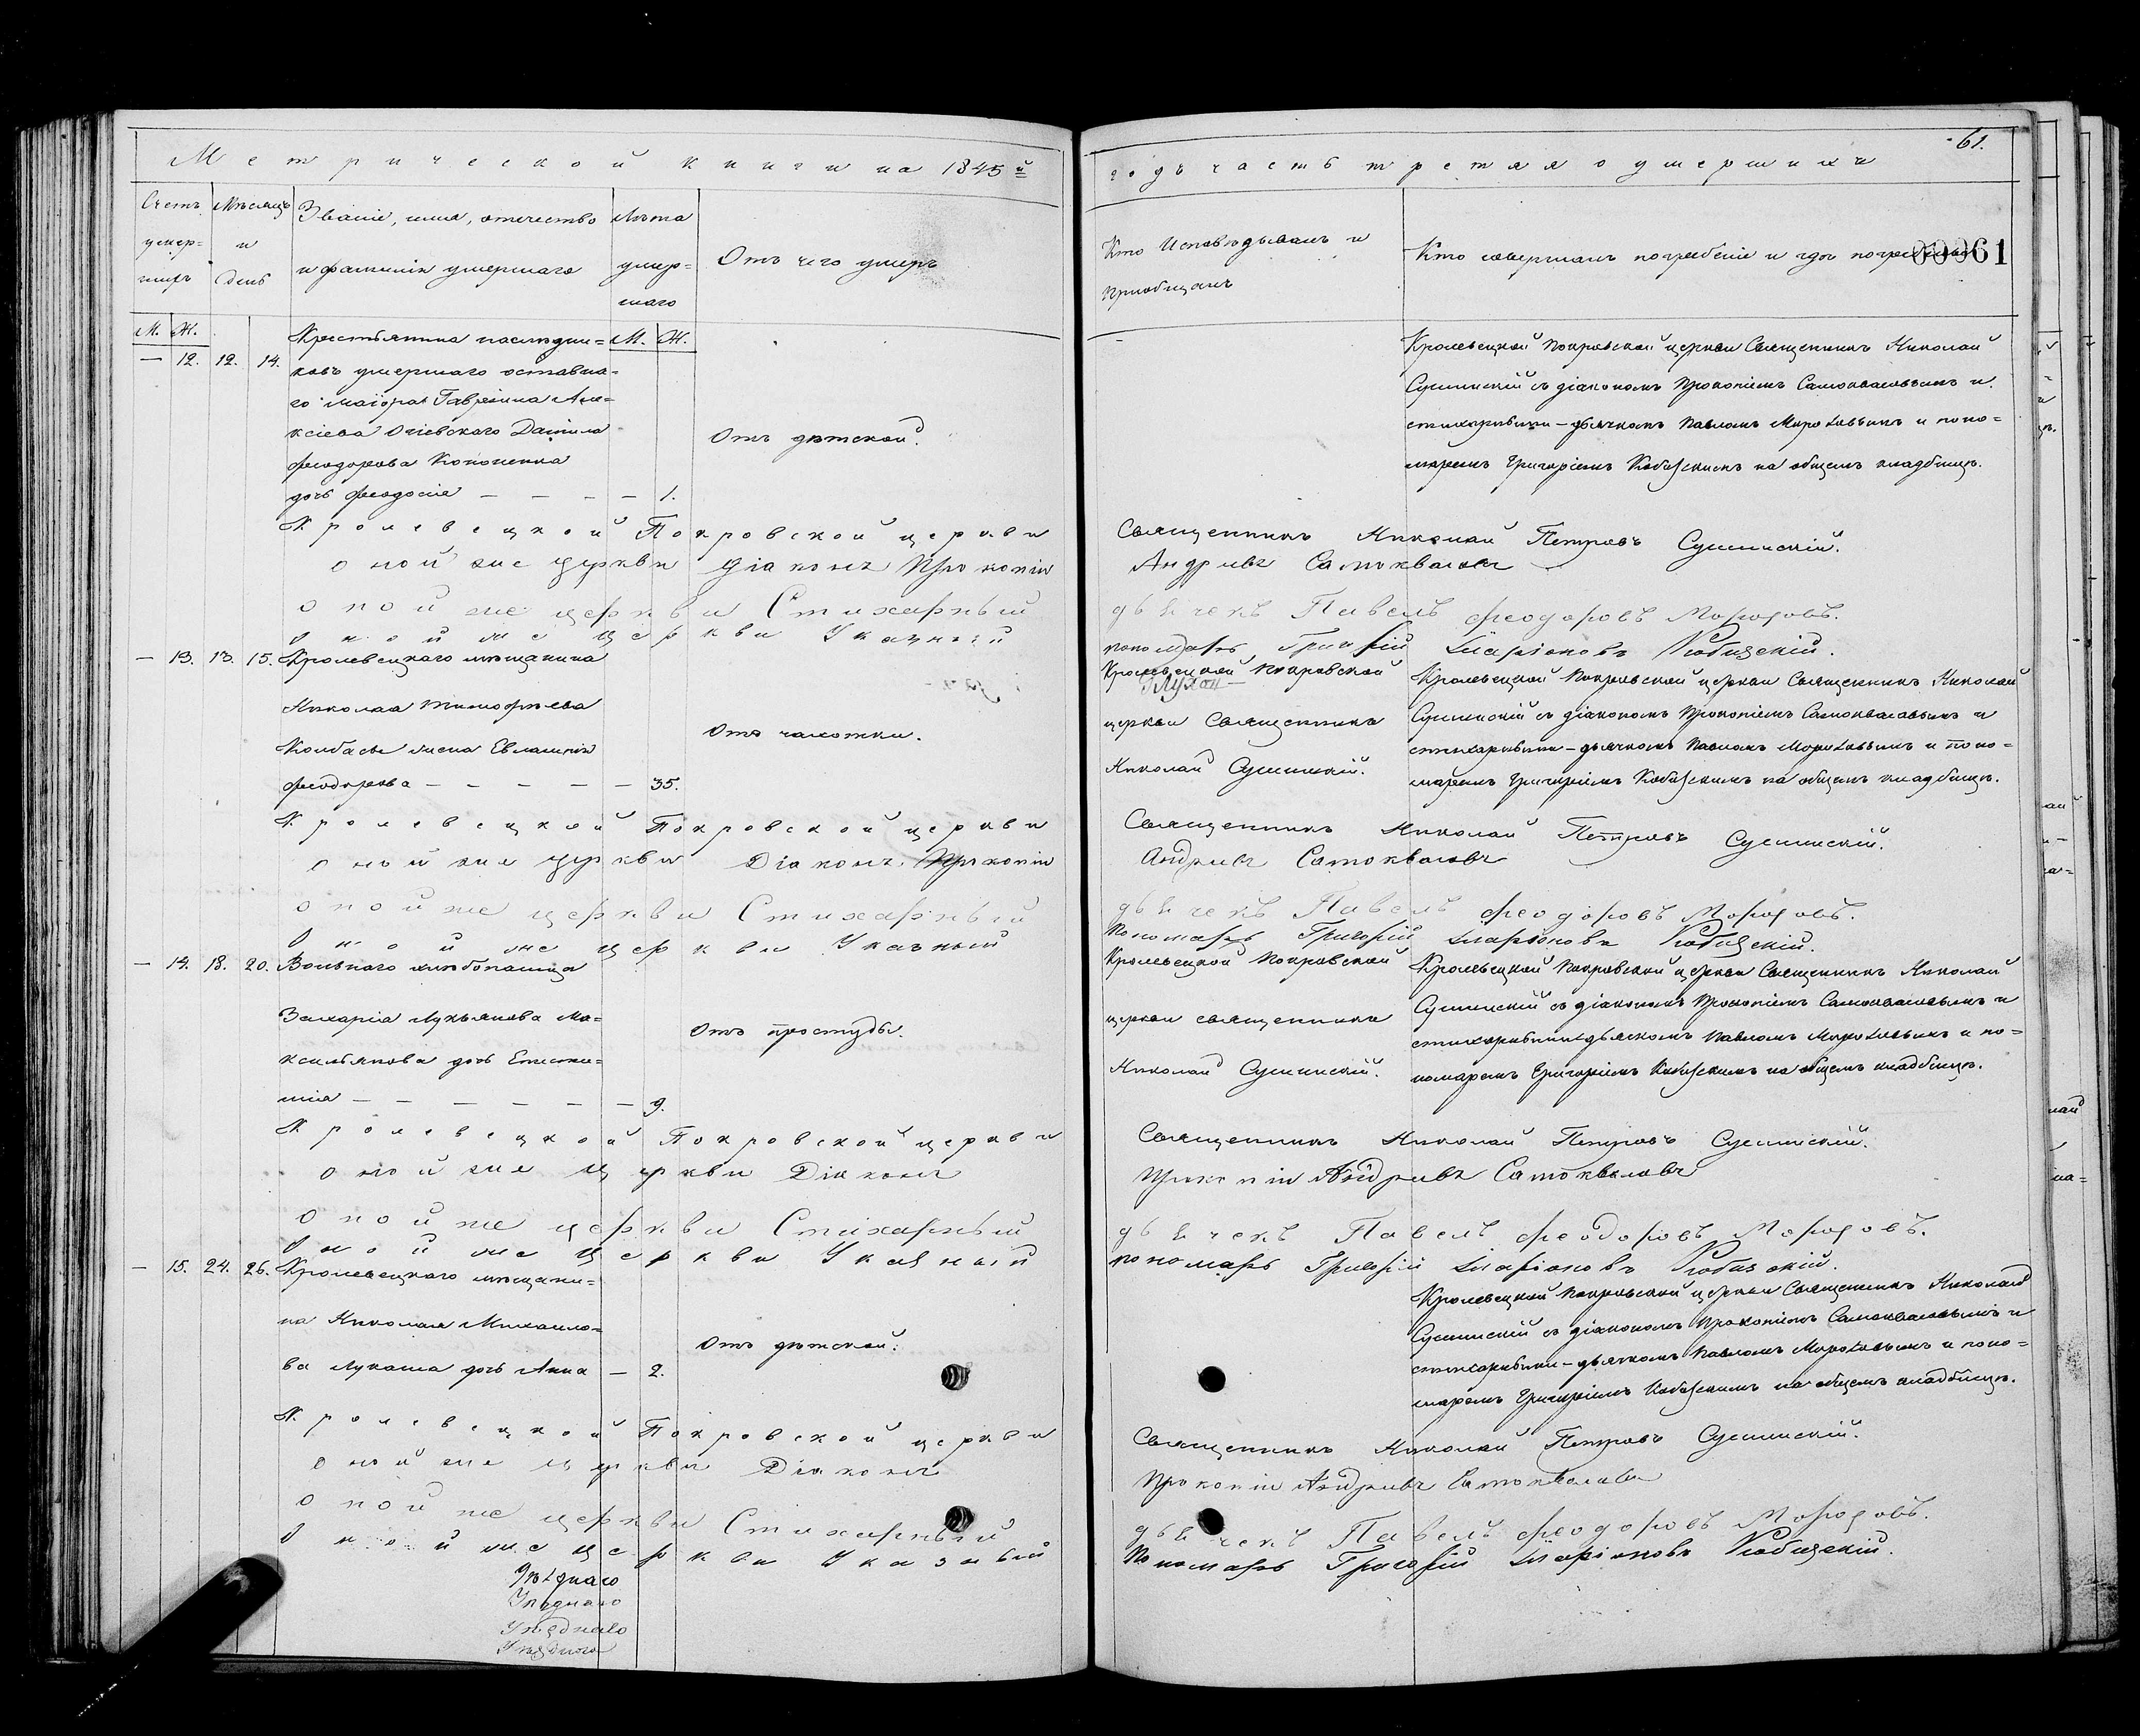 Метрической книги на 1845й
Счетъ умер- шихъ
Мѣсяцъ и День
Званіе, имя, отечество
и фамилія умершаго
Лѣта умер- шаго
Отъ чего умеръ
М. Ж.
М. Ж.
— 12. 12. 14.
Крестьянина наслѣдни=
ковъ умершаго отставна=
го маіора Гавріила Але=
ксіева Огіевскаго Даніила
Феодорова Кононенка
дочь Феодосія — — — — 1.
Отъ дѣтской.
Кролевецкой Покровской церкви
оной же церкви Діаконъ Прокопій
оной же церкви Стихарный
Оной же церкви Указный
— 13. 13. 15. Кролевецкаго мѣщанина
Николая Тимофѣева
Колбасы жена Евлампія
Феодорова — — — — — 35.
Отъ чахотки.
Кролевецкой Покровской церкви
оной же церкви Діаконъ Прокопій
оной же церкви Стихарный
Оной же церкви Указный
— 14. 18. 20. Вольнаго хлѣбопашца
Захарія Лукьянова Ма=
ксимьянова дочь Еписти=
мія — — — — — — 9.
Отъ простуды.
Кролевецкой Покровской церкви
оной же церкви Діаконъ
оной же церкви Стихарный
Оной же церкви Указный
— 15. 24. 26. Кролевецкаго мѣщани=
на Николая Михайло=
ва Лукаша дочь Анна — 2.
Отъ дѣтской.
Кролевецкой Покровской церкви
оной же церкви Діаконъ
оной же церкви Стихарный
Оной же церкви Указный
Уѣзднаго
Уѣзднаго
Уѣзднаго
Уѣзднаго
61.
годъ часть третяя о умершихъ
Кто Исповѣдывалъ и
Пріобщалъ
Кто совершалъ погребеніе и гдѣ погребены
00061
Кролевецкой Покровской церкви Священникъ Николай
Сушинскій съ діакономъ Прокопіемъ Самоквасовымъ и
стихарнымъ-дьячкомъ Павломъ Морозовымъ и поно=
маремъ Григоріемъ Кобызскимъ на общемъ кладбищѣ.
Священникъ Николай Петровъ Сушинскій.
Андреевъ Самоквасовъ
дьячекъ Павелъ Феодоровъ Морозовъ.
пономарь Григорій Иларіоновъ Кобызскій.
Кролевецкой Покровской
церкви Священникъ
Николай Сушинскій.
Кролевецкой Покровской церкви Священникъ Николай
Сушинскій съ діакономъ Прокопіемъ Самоквасовымъ и
стихарнымъ-дьячкомъ Павломъ Морозовымъ и поно=
маремъ Григоріемъ Кобызскимъ на общемъ кладбищѣ.
Священникъ Николай Петровъ Сушинскій.
Андреевъ Самоквасовъ
дьячекъ Павелъ Феодоровъ Морозовъ.
Пономарь Григорій Иларіоновъ Кобызскій.
Кролевецкой Покровской
церкви священникъ
Николай Сушинскій.
Кролевецкой Покровской церкви Священникъ Николай
Сушинскій съ діакономъ Прокопіемъ Самоквасовымъ и
стихарнымъ дьячкомъ Павломъ Морозовымъ и по=
номаремъ Григоріемъ Кобызскимъ на общемъ кладбищѣ.
Священникъ Николай Петровъ Сушинскій.
Прокопій Андреевъ Самоквасовъ
дьячекъ Павелъ Феодоровъ Морозовъ.
пономарь Григорій Иларіоновъ Кобызскій.
Кролевецкой Покровской церкви Священникъ Николай
Сушинскій съ діакономъ Прокопіемъ Самоквасовымъ и
стихарнымъ-дьячкомъ Павломъ Морозовымъ и поно=
маремъ Григоріемъ Кобызскимъ на общемъ кладбищѣ.
Священникъ Николай Петровъ Сушинскій.
Прокопій Андреевъ Самоквасовъ
дьячекъ Павелъ Феодоровъ Морозовъ.
Пономарь Григорій Иларіоновъ Кобызскій.